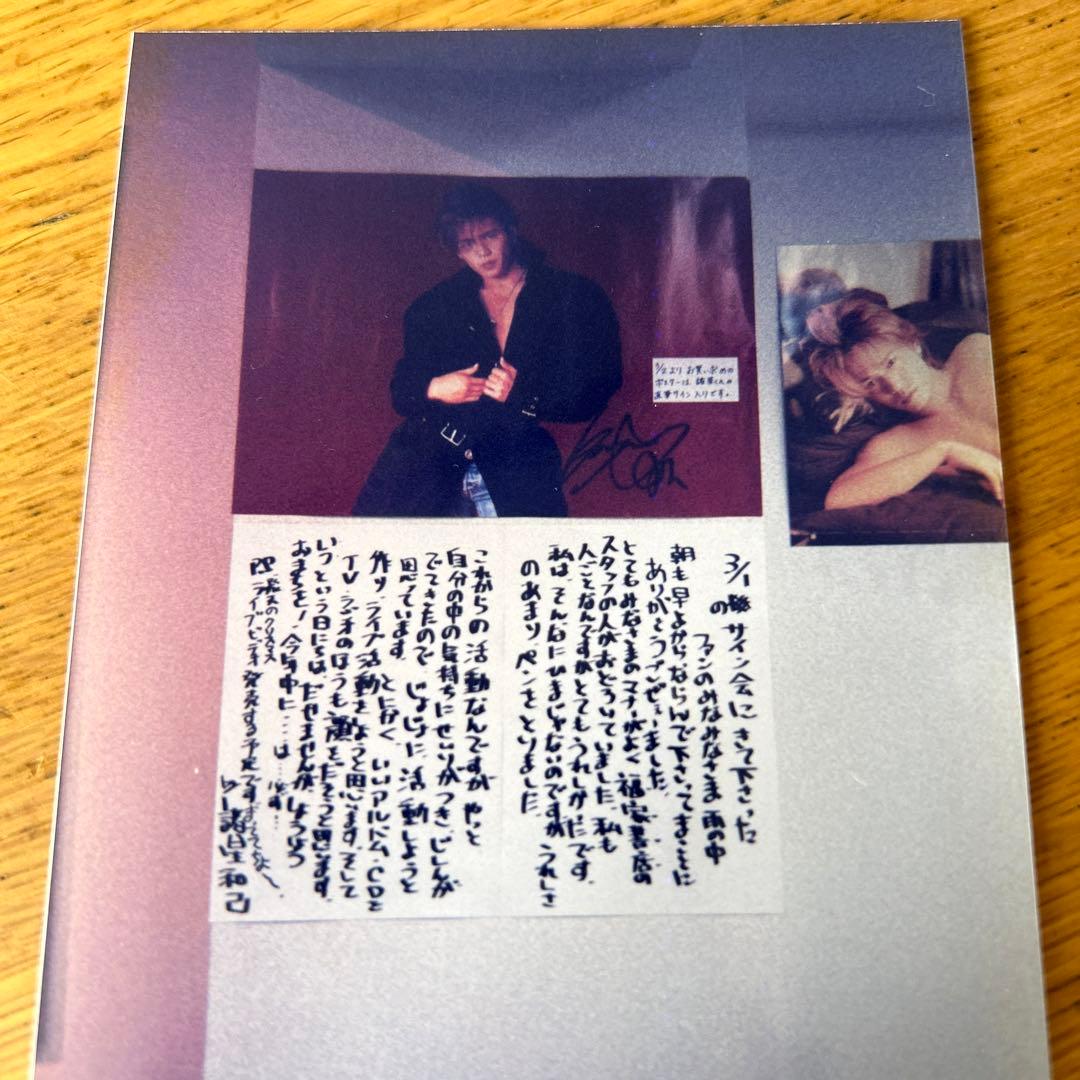 3/2より お買い求めの
ポスターは、諸星くんの
直筆サイン入りです。
3/1のサイン会にきて下さった
ファンのみなみなさま 雨の中
朝も早よからならんで下さってまことに
ありがとうございました。
とてもみなさまのマナーがよく 福家書店の
スタッフの人がおどろいていました。私も
人ごとなんですがとてもうれしかったです。
私は、そんなにひまじゃないのですが うれしさ
のあまり、ペンをとりました。
これからの活動なんですが やっと
自分の中の気持ちにせいりがつき、じしんが
でてきたので、じょじょに、活動しようと
思っています。とにかく、いいアルバム、CDを
作り、ライブ活動をしようと思います。そして
TV、ラジオのほうも
いつという日にちは、だせませんが、しょうぶつ
おまちを! 今年中に……は……必ず…
PS. のクリスマス
ライブビデオ発売する予定です
諸星和己